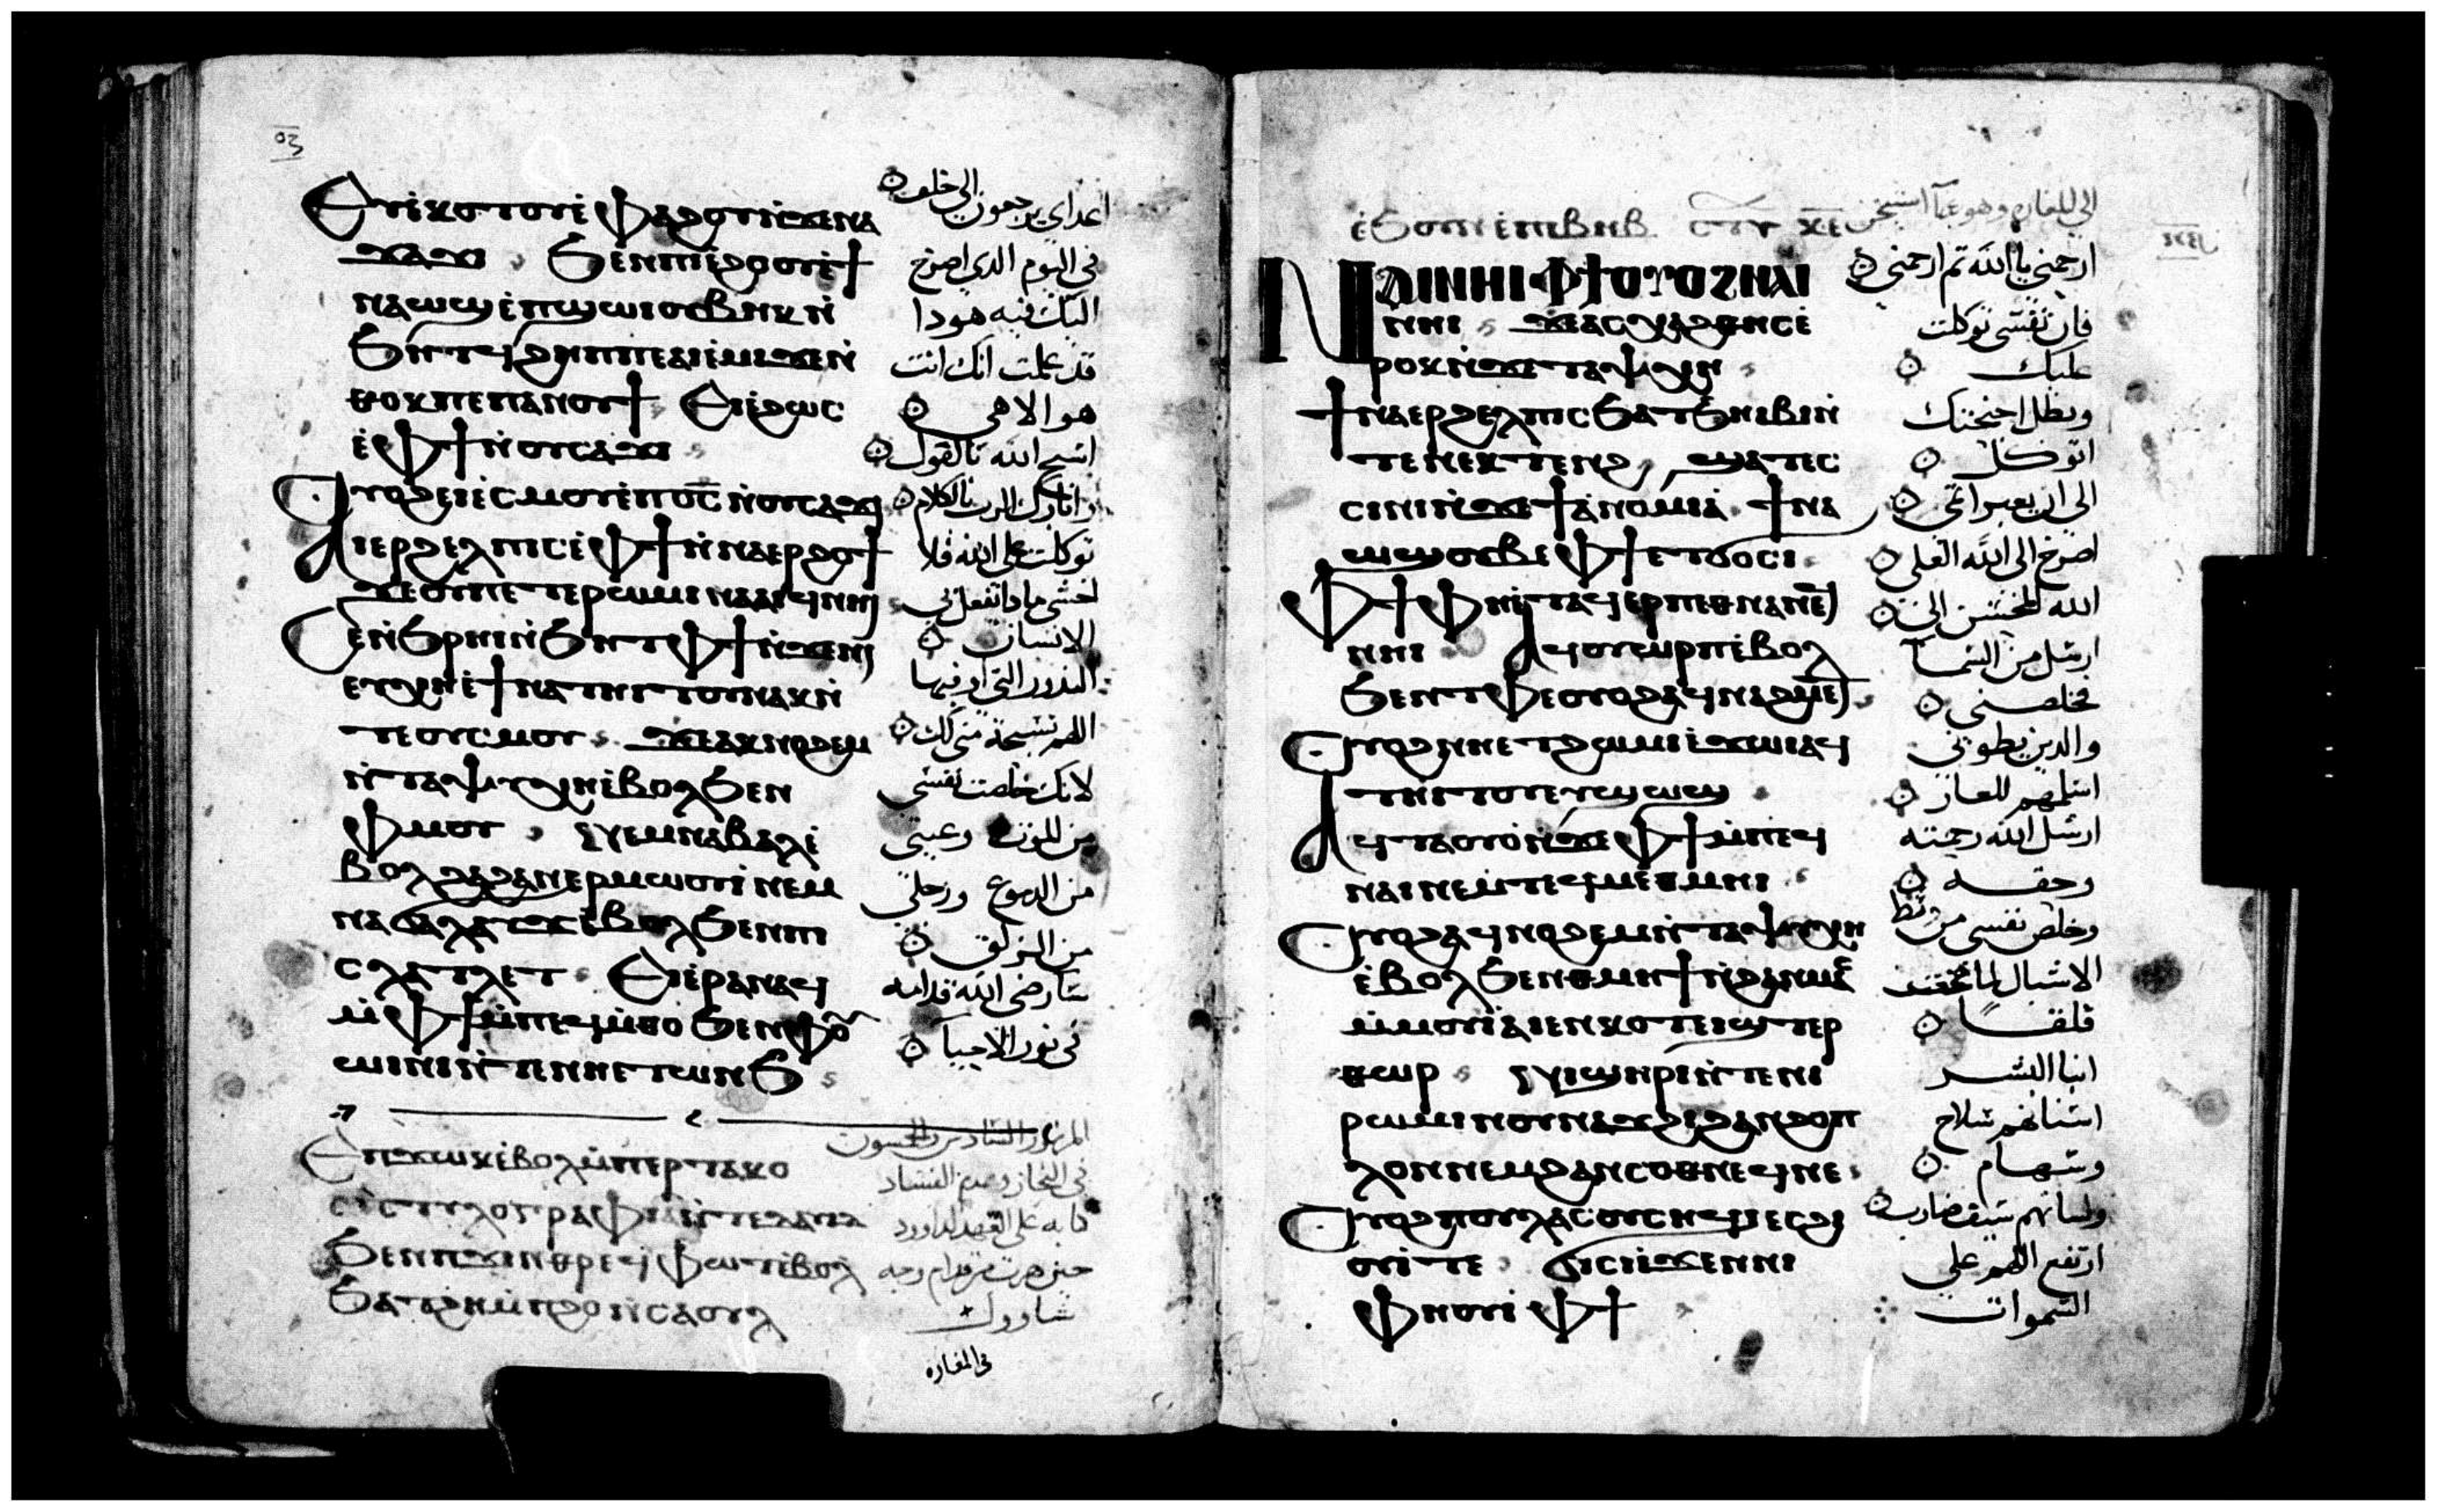 ⲉⲩⲓⲕⲟⲧⲟⲩⲓ̀ⲫⲁϩⲟⲩⲛ̀ϫⲉⲛⲁ
ϫⲁϫⲓ ϧⲉⲛⲡⲓⲉ̀ϩⲟⲟⲩⲉ̀ϯ
ⲛⲁⲱϣⲉ̀ⲡϣⲱⲓⲟⲩⲃⲏⲕⲛ̀
ϧⲏⲧϥϩⲏⲡⲡⲉⲁⲓⲉ̀ⲙⲓϫⲉⲛ̀
ⲑⲟⲕⲡⲉⲡⲁⲛⲟⲩϯ ⲉⲓⲉ̀ϩⲱⲥ
ⲉ̀ⲫϯⲛ̀ⲟⲩⲥⲁϫⲓ
ⲟⲩⲟϩⲉⲓⲉ̀ⲥⲙⲟⲩⲉ̀ⲡⲟ̅ⲥ̅ⲛ̀ⲟⲩⲥⲁϫⲓ
ⲁⲓⲉⲣϩⲉⲗⲡⲓⲥⲉ̀ⲫϯⲛ̀ⲛⲁⲉⲣϩⲟϯ
ϫⲉⲟⲩⲡⲉⲧⲉⲣⲱⲙⲓⲛⲁⲁⲓϥⲛⲏⲓ
ⲥⲉⲛ̀ϧⲣⲏⲓⲛ̀ϧⲏⲧⲫϯⲛ̀ϫⲉⲛⲓ
ⲉⲩⲭⲏⲉ̀ϯⲛⲁⲧⲏⲓⲧⲟⲩⲛⲁⲕⲛ̀
ⲧⲉⲟⲩⲥⲙⲟⲩ ϫⲉⲁⲕⲛⲟϩⲉⲙ
ⲛ̀ⲧⲁⲯⲩⲭⲏⲉ̀ⲃⲟⲗϧⲉⲛ
ⲫⲙⲟⲩ ⲛⲉⲙⲛⲁⲃⲁⲗⲉ̀
ⲃⲟⲗϩⲁϩⲁⲛⲉⲣⲙⲱⲟⲩⲓ̀ⲛⲉⲙ
ⲛⲁϭⲁⲗⲁⲩϫⲉ̀ⲃⲟⲗϧⲉⲛⲡⲓ
ⲥⲗⲁⲧⲗⲉⲧ ⲉⲓⲉ̀ⲣⲁⲛⲁϥ
ⲙ̀ⲫϯⲙ̀ⲡⲉϥⲙ̀ⲑⲟϧⲉⲛⲫⲟ
ⲱⲓⲛⲓⲛ̀ⲧⲉⲛⲏⲉⲧⲱⲛϧ
ⲉⲡϫⲱⲕⲉ̀ⲃⲟⲗⲙ̀ⲡⲉⲣⲧⲁⲕⲟ
ϧⲉⲛⲡϫⲓⲛⲑⲣⲉϥⲫⲱⲧⲉ̀ⲃⲟⲗ
ϧⲁⲧϩⲏⲙ̀ⲡϩⲟⲛ̀ⲥⲁⲟⲩⲗ
اعداي يرجعون الى خلف
في اليوم الدي اصرخ
اليك فيه هودا
قد علمت انك انت
هو الاهي
اسبح الله بالقول
وابارك الرب بالكلام
توكلت على الله فلا
اخشى مادا تفعل بي
الانسان
الندور التي اوفيها
اللهم تسبحة مني لك
لانك خلصت نفسي
من الموت وعيني
من الدموع ورجلي
من الزلق
سارضى الله قدامه
في نور الاحيا
المزمور السادس والخمسون
في النجاز وعدم الفساد
كتابه على العهد لداوود
حين هرب من قدام وجه
شاوول
في المغاره
ⲉ̀ϧⲟⲩⲛⲉ̀ⲡⲓⲃⲏⲃ
ⲛⲁⲓⲛⲏⲓⲫϯⲟⲩⲟϩⲛⲁⲓ
ⲛⲏⲓ ϫⲉⲁⲥⲭⲁϩⲑⲏⲥⲉ̀
ⲣⲟⲕⲛ̀ϫⲉⲧⲁⲯⲩⲭⲏ
ϯⲛⲁⲉⲣϩⲉⲗⲡⲓⲥϧⲁⲧϧⲏⲓⲃⲓⲛ̀
ⲧⲉⲛⲉⲕⲧⲉⲛϩ ϣⲁⲧⲉⲥ
ⲥⲓⲛⲓⲛ̀ϫⲉϯⲁⲛⲟⲙⲓⲁ ϯⲛⲁ
ⲱϣⲟⲩⲃⲉⲫϯⲉⲧϭⲟⲥⲓ
ⲫϯⲫⲏⲉ̀ⲧⲁϥⲉⲣⲡⲉⲑⲛⲁⲛⲉϥ
ⲛⲏⲓ ⲁϥⲟⲩⲱⲣⲡⲉ̀ⲃⲟⲗ
ϧⲉⲛⲧⲫⲉⲟⲩⲟϩⲁϥⲛⲁϩⲙⲉⲧ
ⲟⲩⲟϩⲛⲏⲉⲧϩⲱⲙⲓⲉ̀ϫⲱⲓⲁϥ
ⲧⲏⲓⲧⲟⲩⲉⲩϣⲱϣ
ⲁϥⲧⲁⲟⲩⲟ̀ⲛ̀ϫⲉⲫϯⲙ̀ⲡⲉϥ
ⲛⲁⲓⲛⲉⲙⲧⲉϥⲙⲉⲑⲙⲏⲓ
ⲟⲩⲟϩⲁϥⲛⲟϩⲉⲙⲛ̀ⲧⲁⲯⲩⲭⲏ
ⲉ̀ⲃⲟⲗϧⲉⲛⲑⲙⲏϯⲛ̀ϩⲁⲛⲙⲁ
ⲙ̀ⲙⲟⲩⲓ̀ⲁⲓⲉⲛⲕⲟⲧⲉⲓϣⲧⲉⲣ
ⲑⲱⲣ ⲛⲉⲛϣⲏⲣⲓⲛ̀ⲧⲉⲛⲓ
ⲣⲱⲙⲓⲛⲟⲩⲛⲁϫϩⲓϩⲁⲛϩⲟⲡ
ⲗⲟⲛⲛⲉⲙϩⲁⲛⲥⲟⲑⲛⲉϥⲛⲉ
ⲟⲩⲟϩⲡⲟⲩⲗⲁⲥⲟⲩⲥⲏϥⲓⲉⲥϩⲓ
ⲟⲩⲓ̀ⲧⲉ ϭⲓⲥⲓⲉ̀ϫⲉⲛⲛⲓ
ⲫⲏⲟⲩⲓ̀ⲫϯ
ارحمني يا الله ثم ارحمني
فان نفسي توكلت
عليك
وبظل اجنحتك
اتوكل
الى ان يعبر اثمي
اصرخ الى الله العلي
الله المحسن الي
ارسل من السما
فخلصني
والدين يطوني
اسلمهم للعار
ارسل الله رحمته
وحقه
وخلص نفسي من وسط
قلقا
ابنا البشر
اسنانهم سلاح
وسهام
ولسانهم سيف ضارب
ارتفع اللهم على
السموات